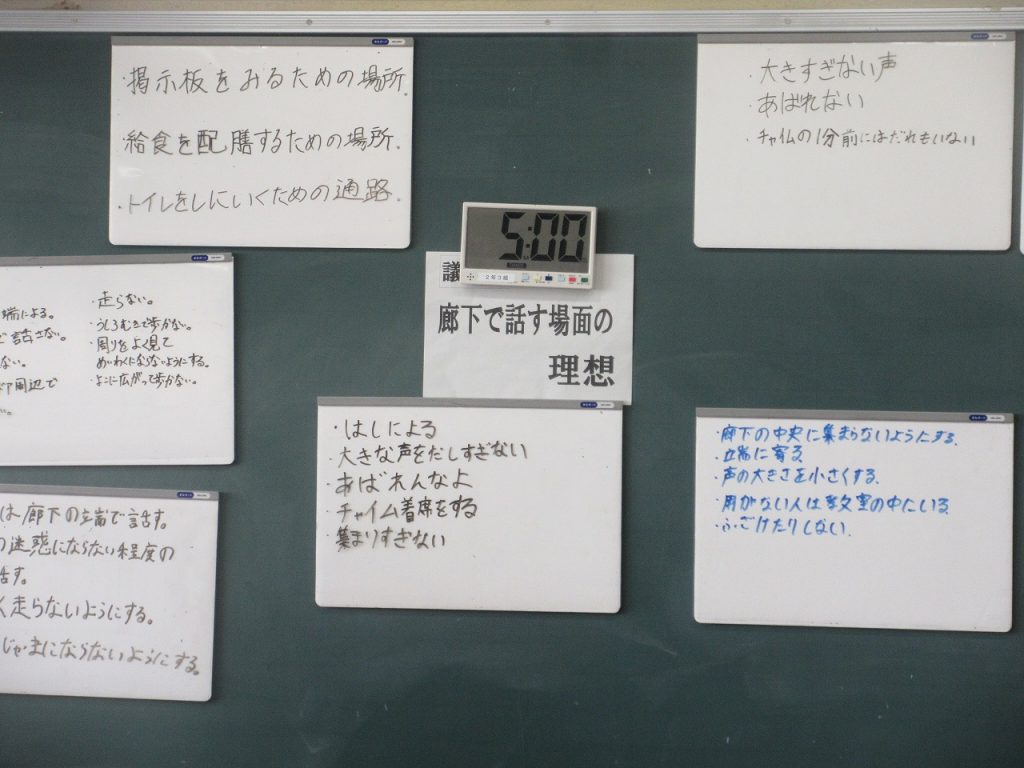 ・掲示板をみるための場所.
・給食を配膳するための場所.
・トイレをしにいくための通路.
・大きすぎない声
・あばれない
・チャイムの1分前にはだれもいない
5:00
2年3組
議
廊下で話す場面の
理想
端による。
で話さない。
ない。
周辺で
・走らない。
・うしろむきで歩かない。
・周りをよく見て
めいわくにならないようにする。
・よこに広がって歩かない。
は廊下の端で話す。
の迷惑にならない程度の
話す。
く走らないようにする。
じゃまにならないようにする。
・はしによる
・大きな声をだしすぎない
・あばれんなよ
・チャイム着席をする
・集まりすぎない
・廊下の中央に集まらないようにする.
・端に寄る
・声の大きさを小さくする.
・用がない人は教室の中にいる
・ふざけたりしない.